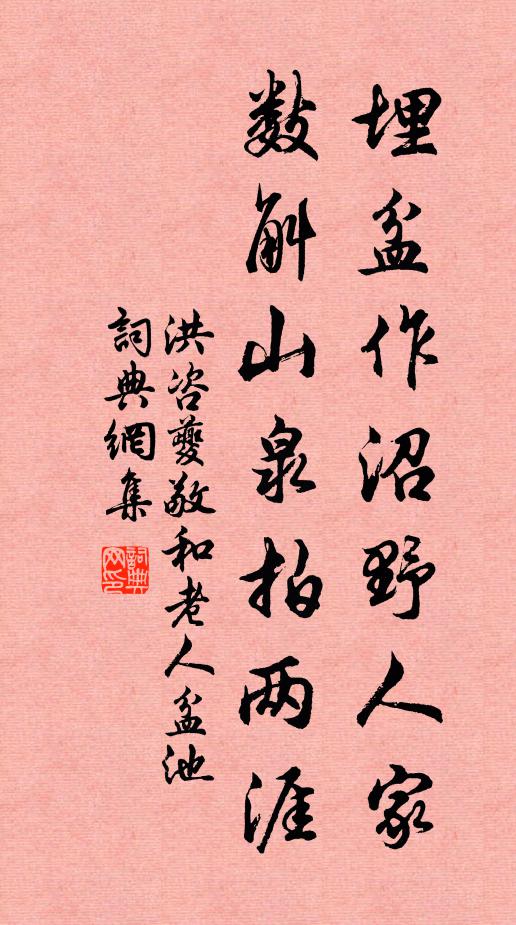 埋盆作沼野人家
数斛山泉拍两涯
洪咨夔敬和老人盆池
詞典網集
詞典网印